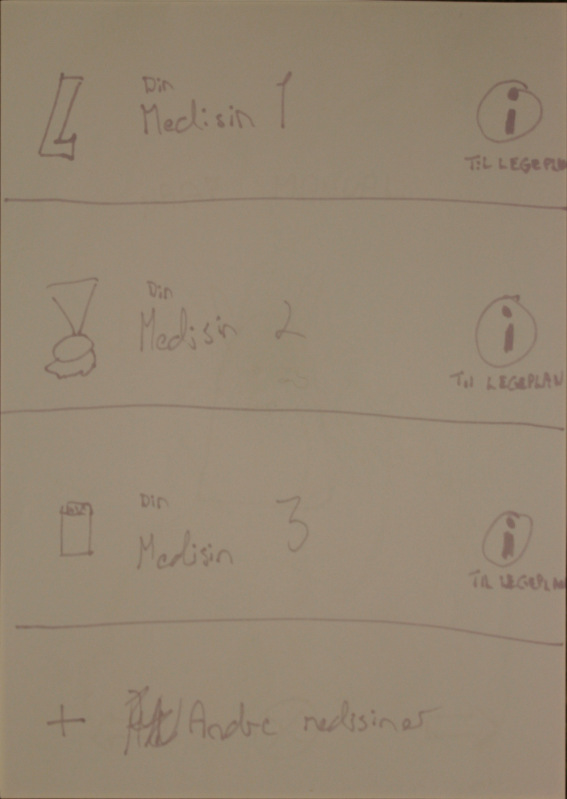 Din
Medisin 1
i
TIL LEGEPLAN
Din
Medisin 2
i
TIL LEGEPLAN
Din
Medisin 3
i
TIL LEGEPLAN
+ Andre medisiner